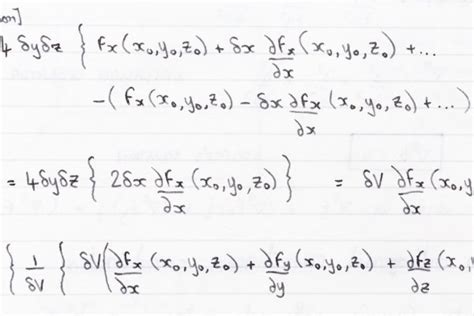 on]
4 δyδz { fx(x₀,y₀,z₀) + δx ∂fx/∂x (x₀,y₀,z₀) + ...
-( fx(x₀,y₀,z₀) - δx ∂fx/∂x (x₀,y₀,z₀) + ...)
= 4δyδz { 2δx ∂fx/∂x (x₀,y₀,z₀) } = δV ∂fx/∂x (x₀,y
{ 1/δV { δV ( ∂fx/∂x (x₀,y₀,z₀) + ∂fy/∂y (x₀,y₀,z₀) + ∂fz/∂z (x₀,